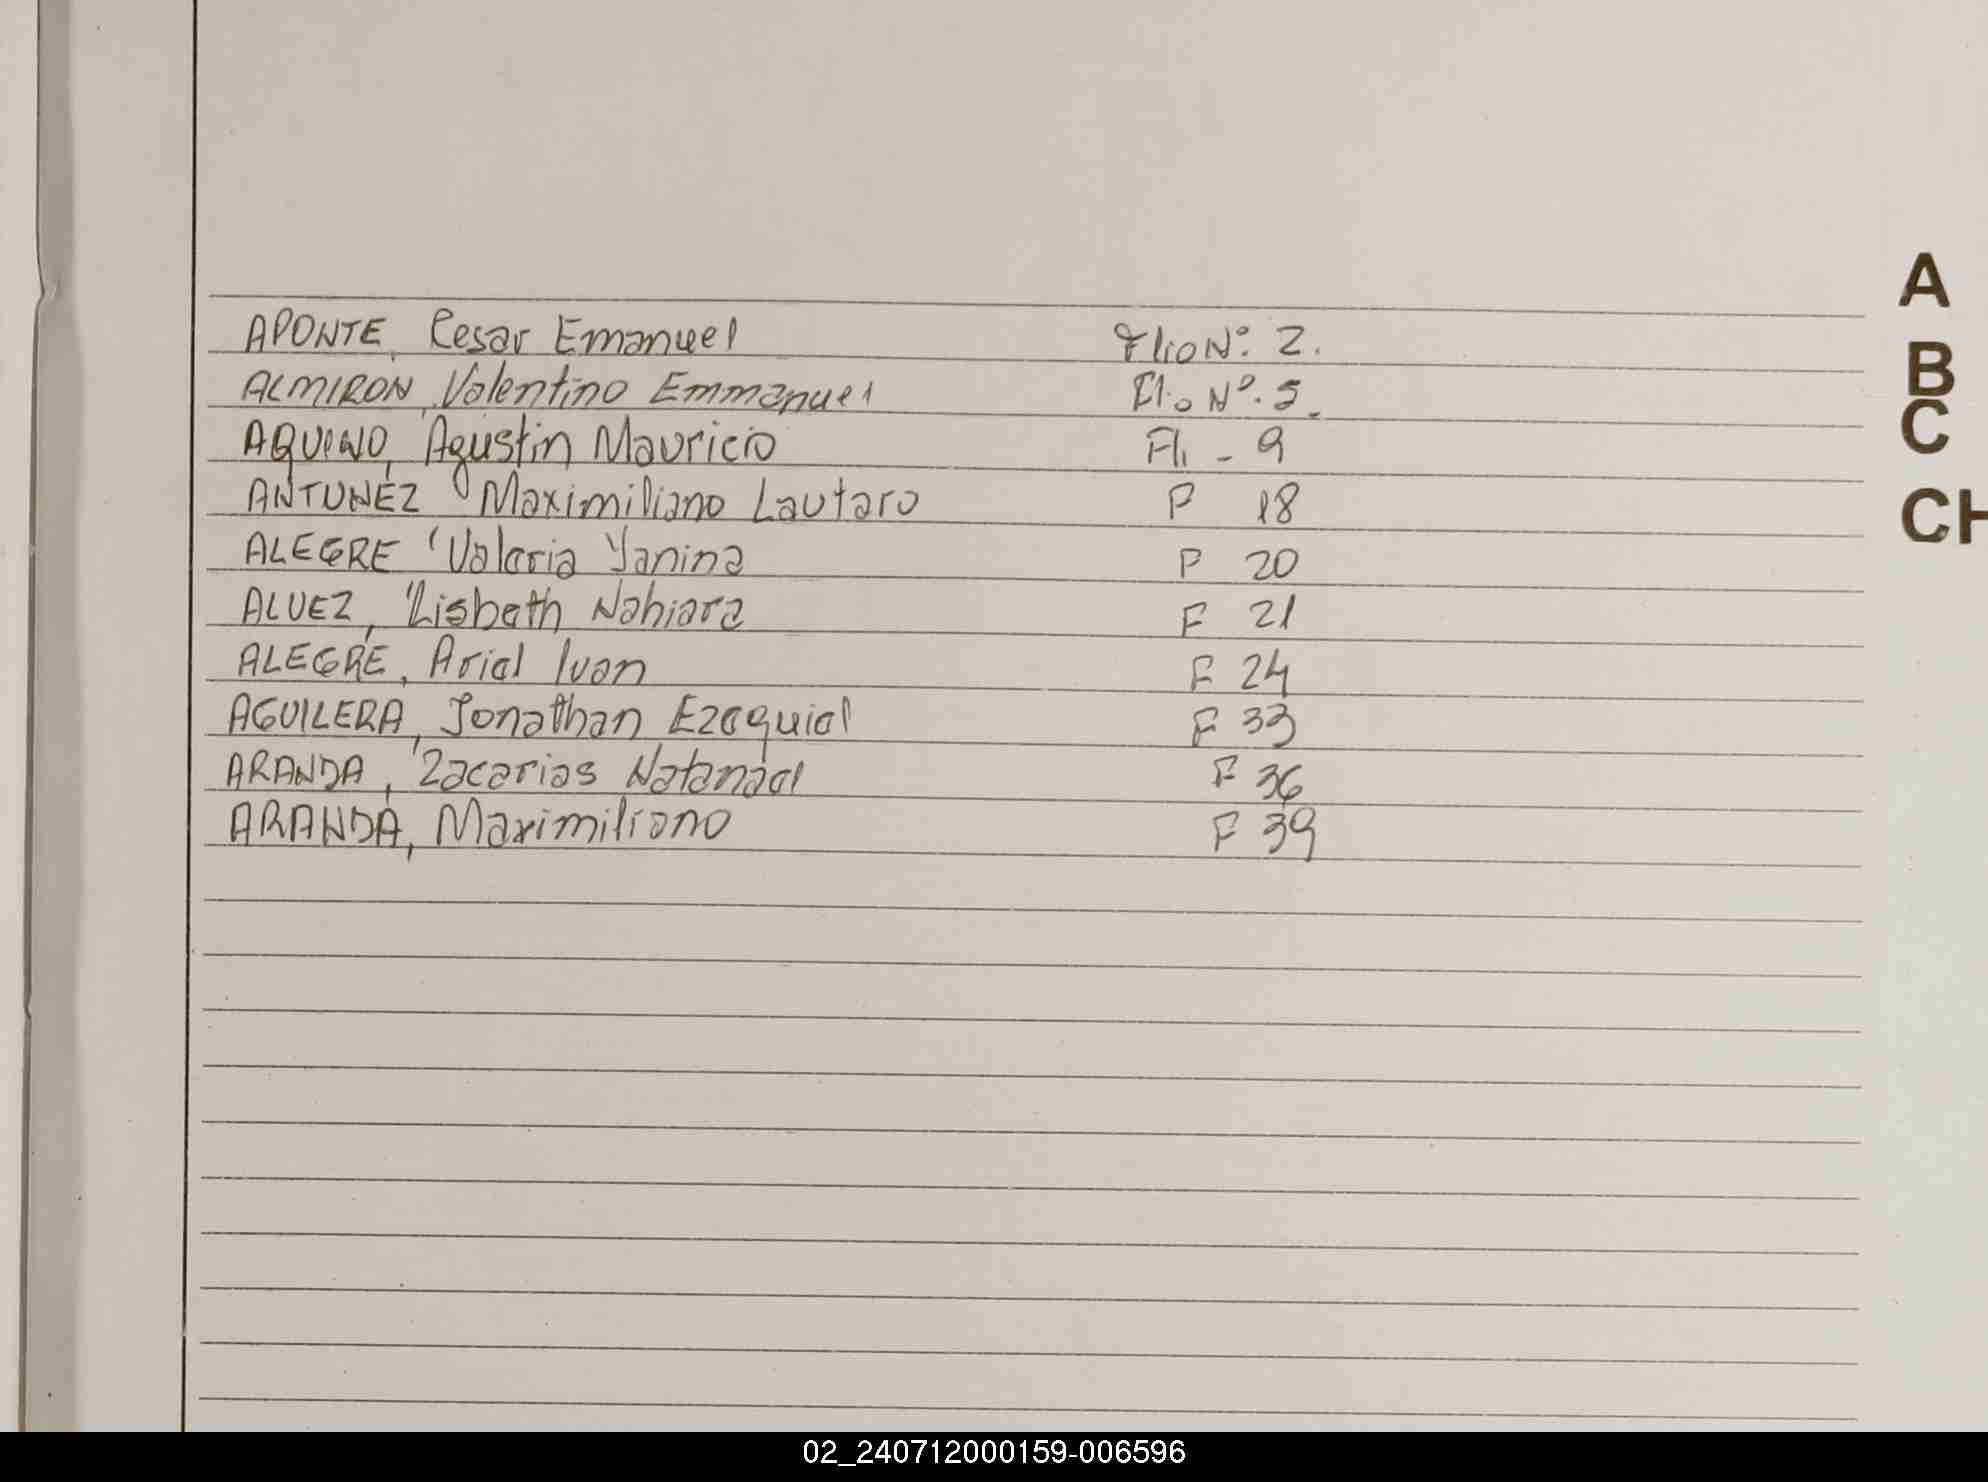 A
B
C
CH
APONTE, Cesar Emanuel Flio Nº: 2.
ALMIRON, Valentino Emmanuel Flio Nº. 5.
AQUINO, Agustin Mauricio Fli - 9
ANTUNEZ Maximiliano Lautaro P 18
ALEGRE Valeria Yanina P 20
ALVEZ, Lisbeth Nahiara F 21
ALEGRE, Ariel Ivan F 24
AGUILERA, Jonathan Ezequiel F 33
ARANDA, Zacarias Natanael F 36
ARANDA, Maximiliano F 39
02_240712000159-006596